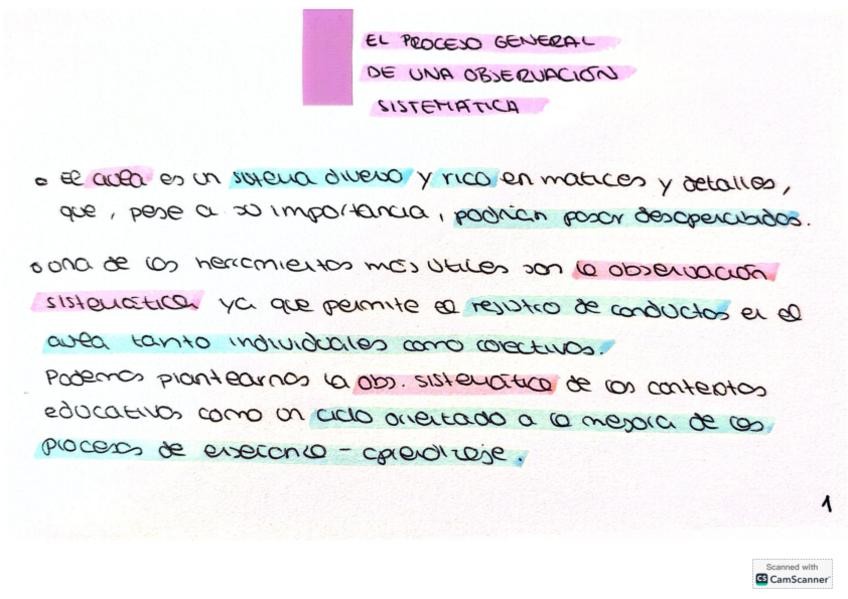 EL PROCESO GENERAL
DE UNA OBSERVACIÓN
SISTEMÁTICA
El aula es un sistema diverso y rico en matices y detalles,
que, pese a su importancia, podrían pasar desapercibidos.
una de las herramientas más útiles son la observación
sistemática ya que permite el registro de conductas en el
aula tanto individuales como colectivos.
Podemos plantearnos la obs. sistemática de los contextos
educativos como un ciclo orientado a la mejora de los
procesos de enseñanza - aprendizaje.
1
Scanned with
CS CamScanner